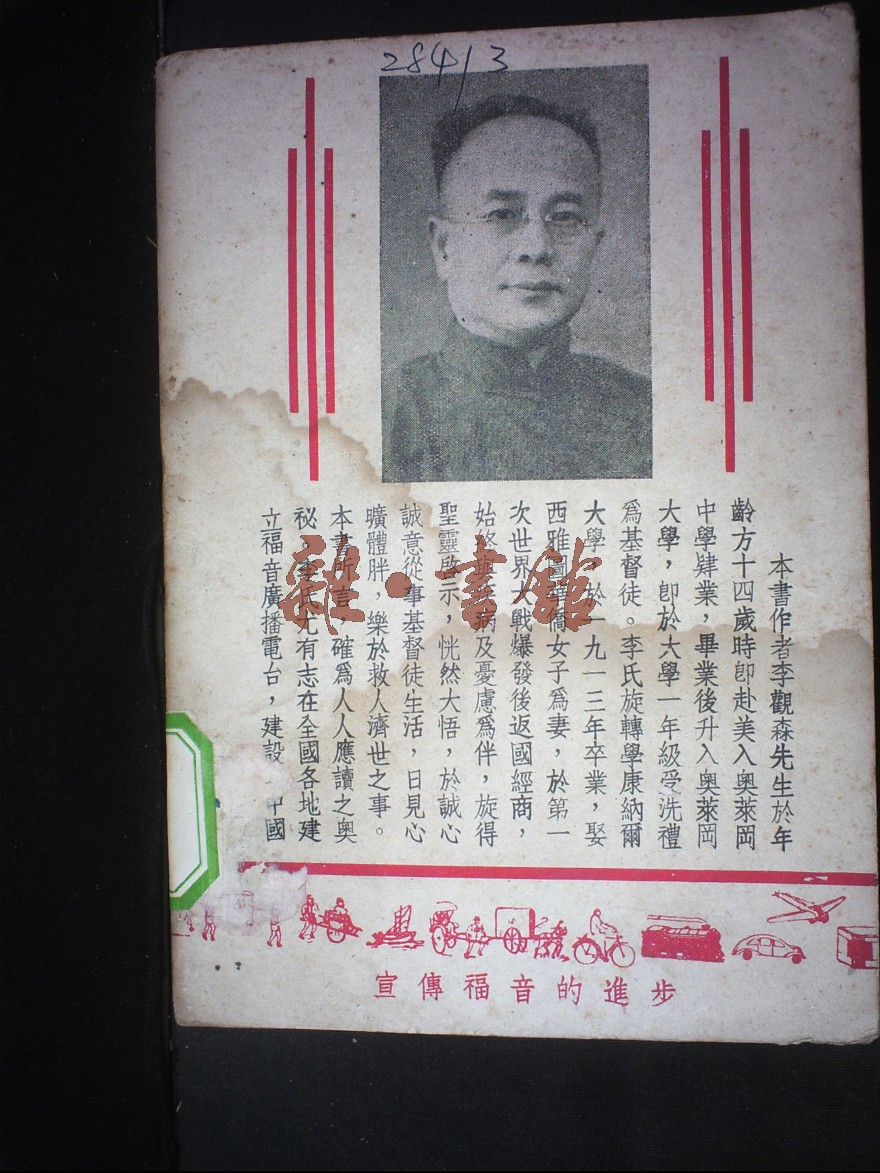 28413
本書作者李觀森先生於年
齡方十四歲時卽赴美入奧萊岡
中學肄業，畢業後升入奧萊岡
大學，卽於大學一年級受洗禮
爲基督徒。李氏旋轉學康納爾
大學，於一九一三年卒業，娶
西雅圖華僑女子爲妻，於第一
次世界大戰爆發後返國經商，
始終與疾病及憂慮爲伴，旋得
聖靈啟示，恍然大悟，於誠心
誠意從事基督徒生活，日見心
曠體胖，樂於救人濟世之事。
本書所言，確爲人人應讀之奥
秘。李氏尤有志在全國各地建
立福音廣播電台，建設 中國
雜·書館
宣傳福音的進步